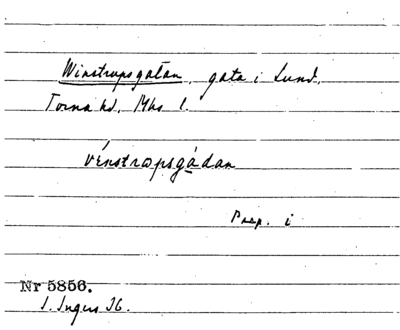 Winstrupsgatan, gata i Lund,
Torna hd, Mhs l.
vénstrωpsgádan
Prep. i
Nr 5856.
I. Ingers 36.